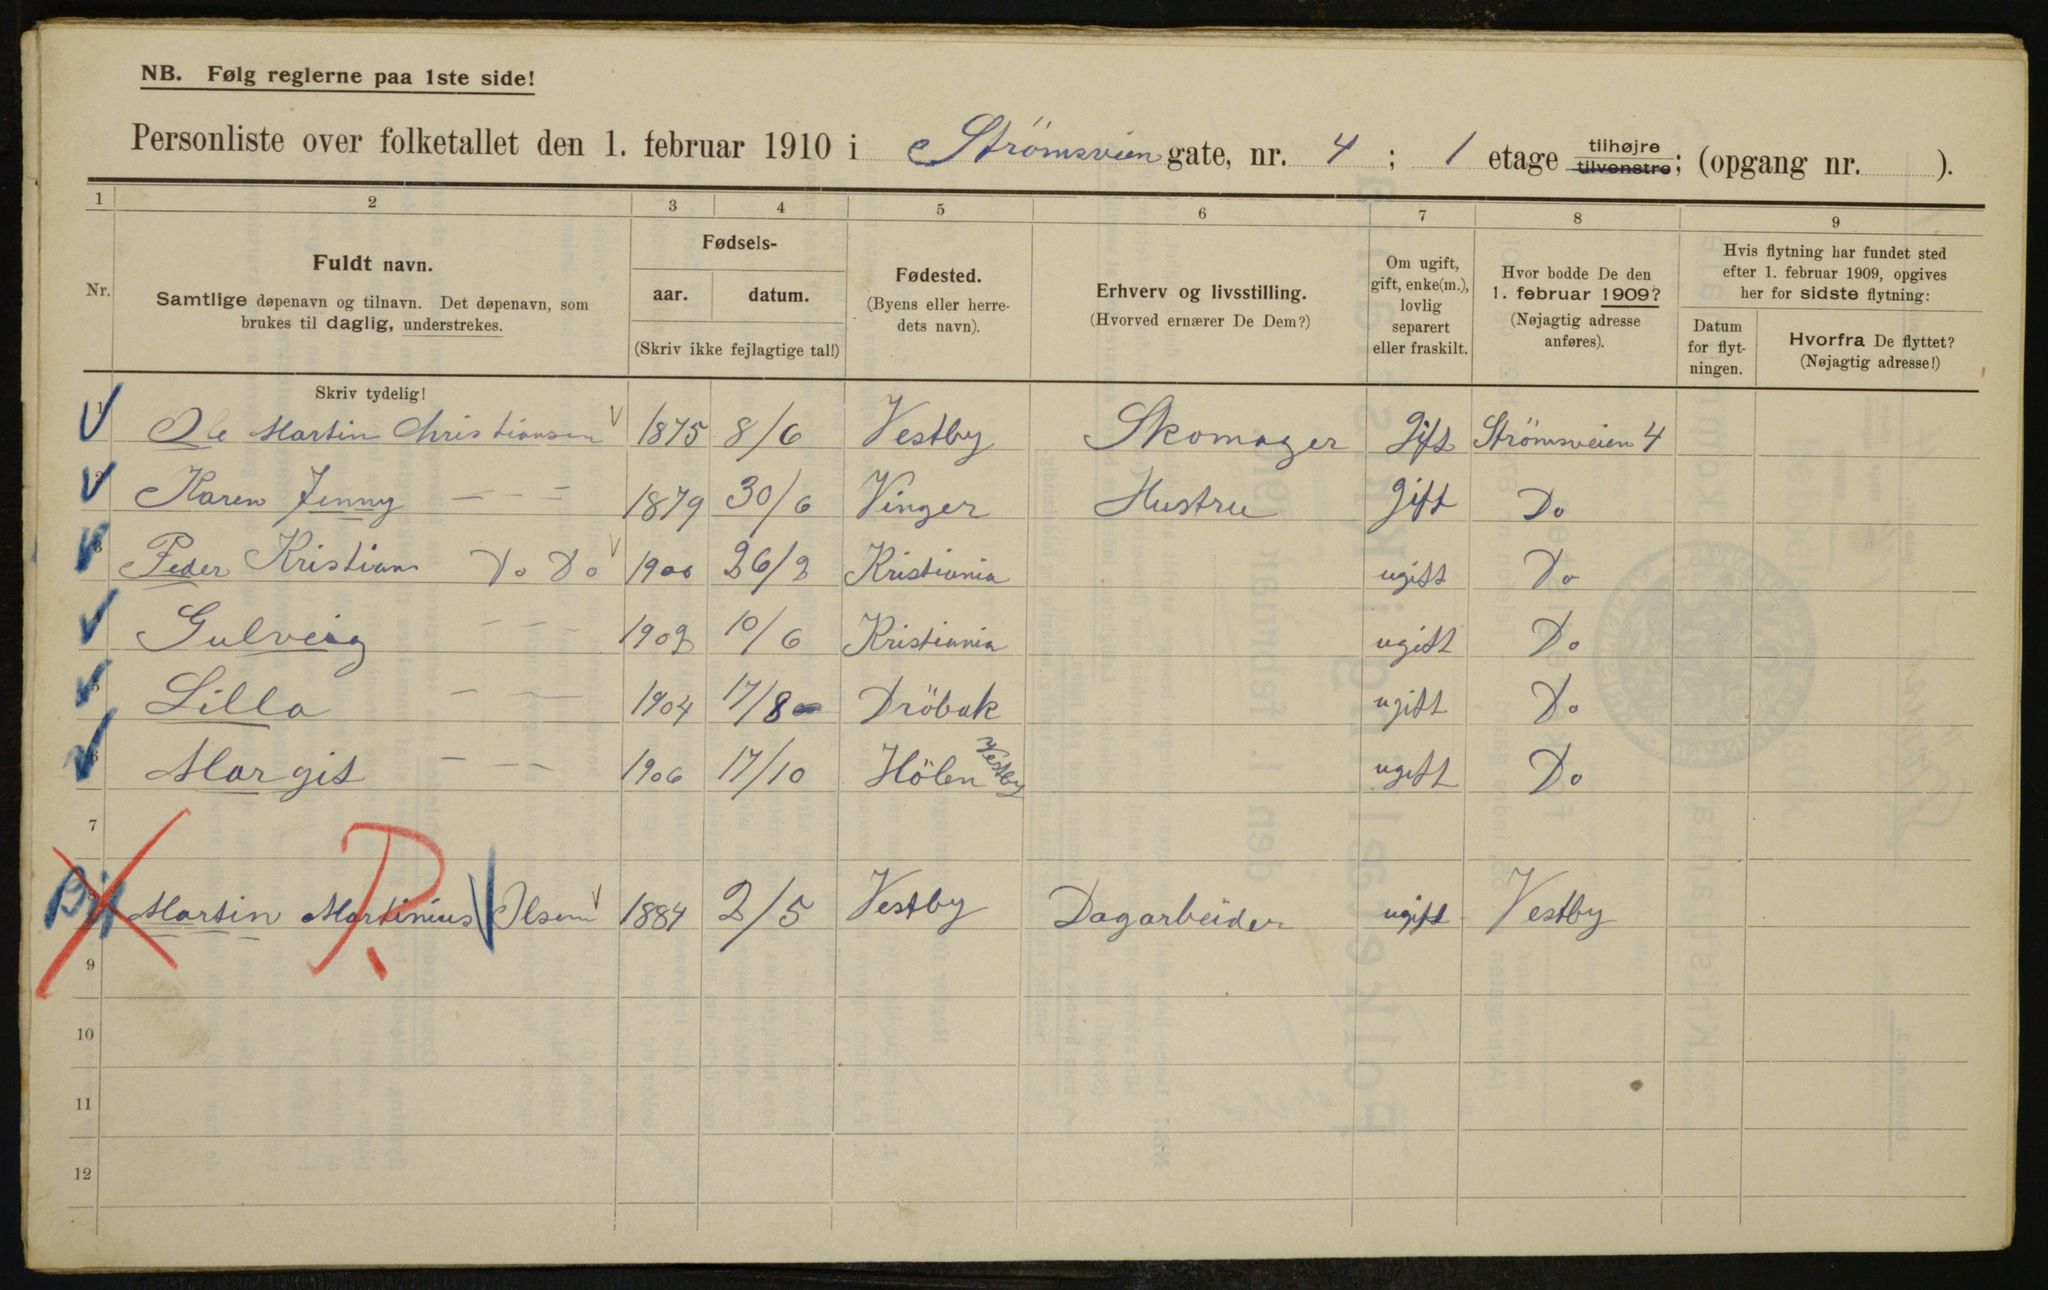 NB. Følg reglerne paa 1ste side!
Personliste over folketallet den 1. februar 1910 i Strömsveien gate, nr. 4 ; 1 etage tilhøjre tilvenstre; (opgang nr. ).
1 2 3 4 5 6 7 8 9
Nr. Fuldt navn. Samtlige døpenavn og tilnavn. Det døpenavn, som brukes til daglig, understrekes.
Fødsels- aar. datum. (Skriv ikke fejlagtige tal!)
Fødested. (Byens eller herredets navn).
Erhverv og livsstilling. (Hvorved ernærer De Dem?)
Om ugift, gift, enke(m.), lovlig separert eller fraskilt.
Hvor bodde De den 1. februar 1909? (Nøjagtig adresse anføres).
Hvis flytning har fundet sted efter 1. februar 1909, opgives her for sidste flytning:
Datum for flytningen. Hvorfra De flyttet? (Nøjagtig adresse!)
Skriv tydelig!
1 Ole Martin Christiansen 1875 8/6 Vestby Skomager Gift Strömsveien 4
2 Karen Jenny — — = 1879 30/6 Vinger Hustru Gift Do
3 Peder Kristian Do Do 1900 26/2 Kristiania ugift Do
Gulveig — — — 1902 10/6 Kristiania ugift Do
5 Lilla — — — 1904 17/8 Dröbak ugift Do
6 Margit — — — 1906 17/10 Hölen Vestby ugift Do
7
8 Martin Martinius Olsen 1884 2/5 Vestby Dagarbeider ugift Vestby
P.
9
10
11
12